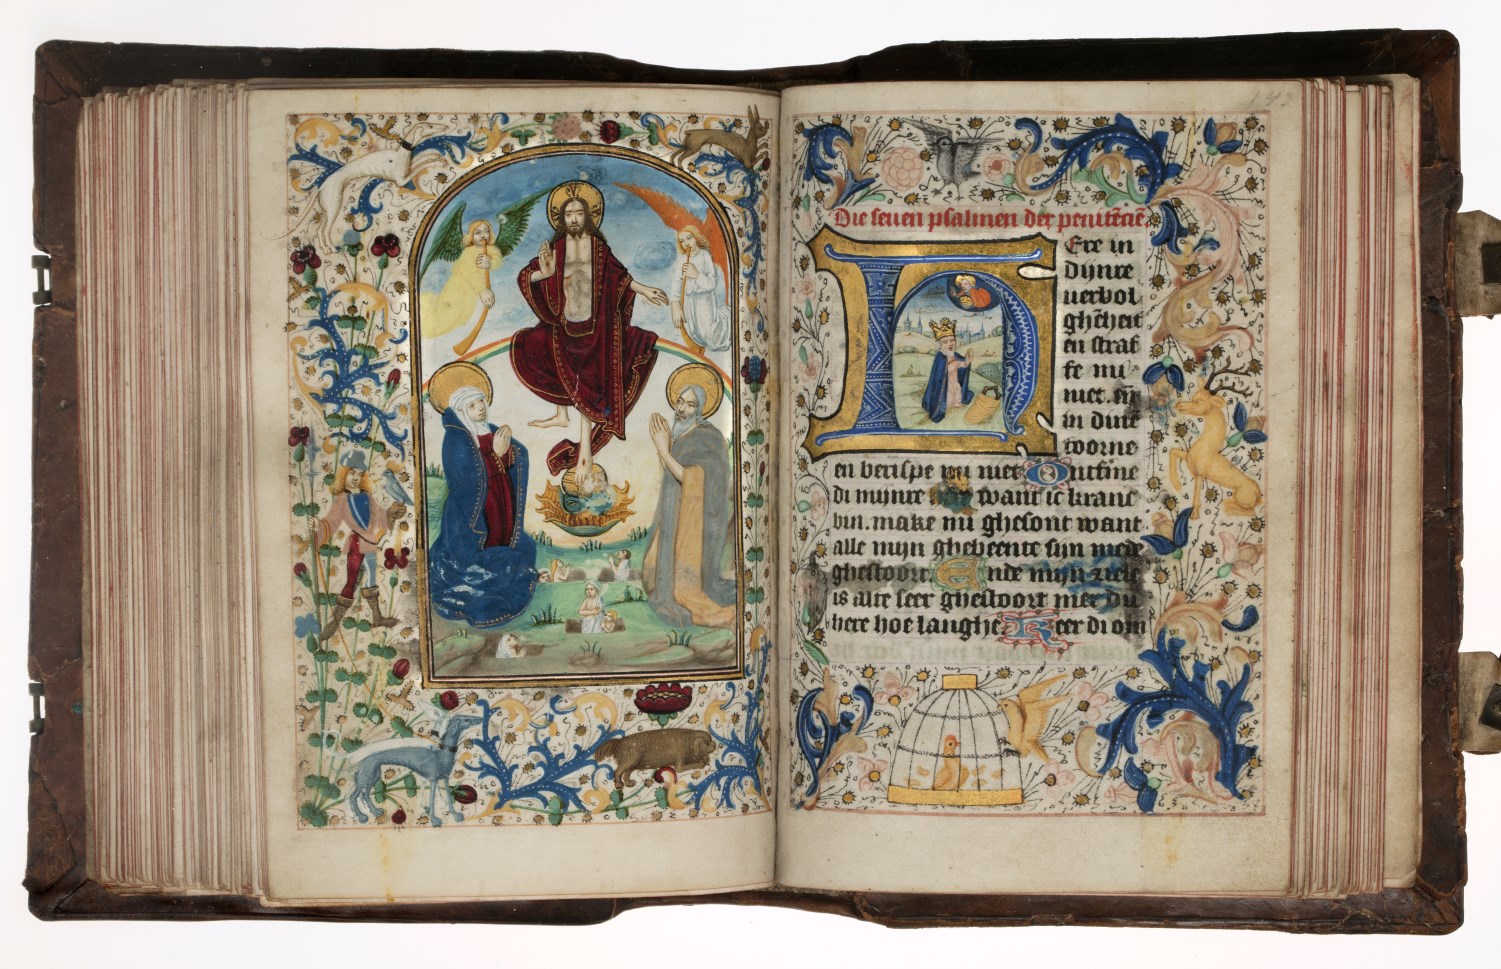 Die seuen psalmen der penitēciē
HEre in
dijnre
uerbol
ghēheit
en straf
fe mi
niet. eñ
in dinē
toorne
en berispe mi niet Ontfine
di mijnre want ic kranc
bin. make mi ghesont want
alle mijn ghebeente sijn mede
ghestoort. Ende mijn ziele
is alte seer ghestoort mer du
here hoe langhe Keer di om